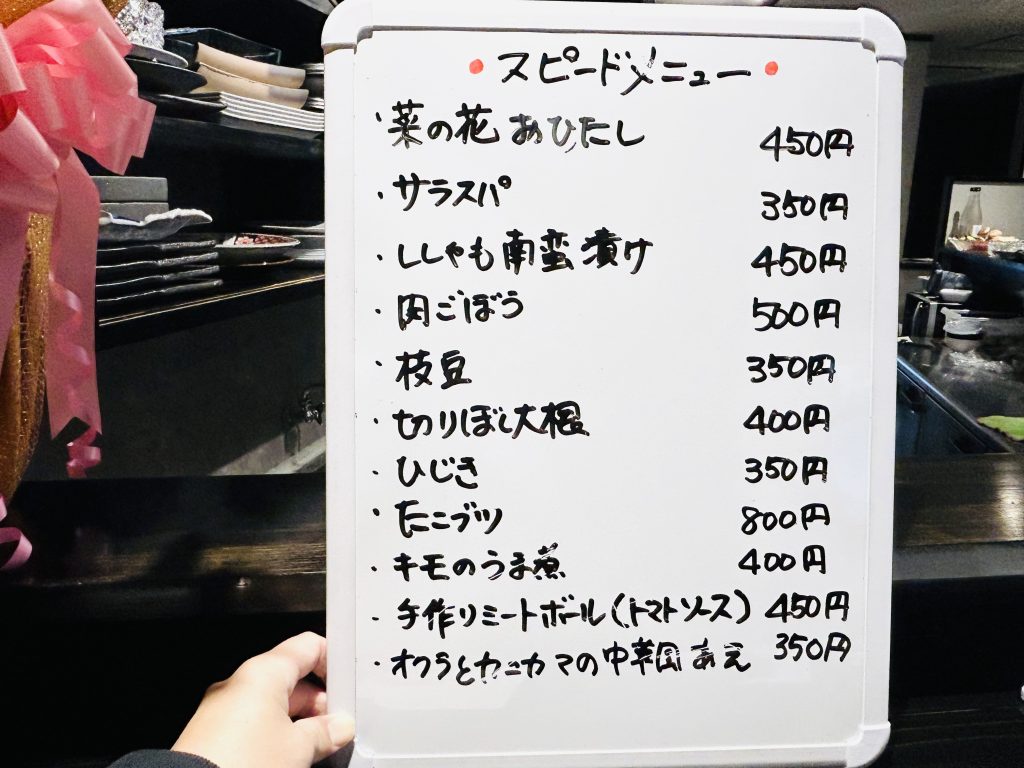 ・スピードメニュー・
・菜の花 おひたし 450円
・サラスパ 350円
・ししゃも南蛮漬け 450円
・肉ごぼう 500円
・枝豆 350円
・切りぼし大根 400円
・ひじき 350円
・たこブツ 800円
・キモのうま煮 400円
・手作りミートボール(トマトソース) 450円
・オクラとカニカマの中華風あえ 350円